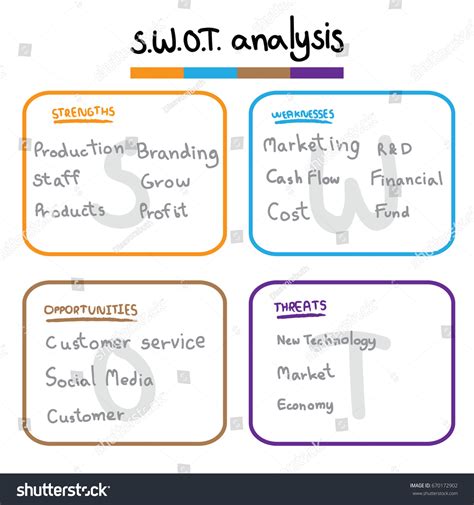 S.W.O.T. analysis
STRENGTHS
Production Branding
Staff Grow
Products Profit
WEAKNESSES
Marketing R&D
Cash Flow Financial
Cost Fund
OPPORTUNITIES
Customer service
Social Media
Customer
THREATS
New Technology
Market
Economy
S
W
O
T
shutterstock
IMAGE ID: 670172902
www.shutterstock.com